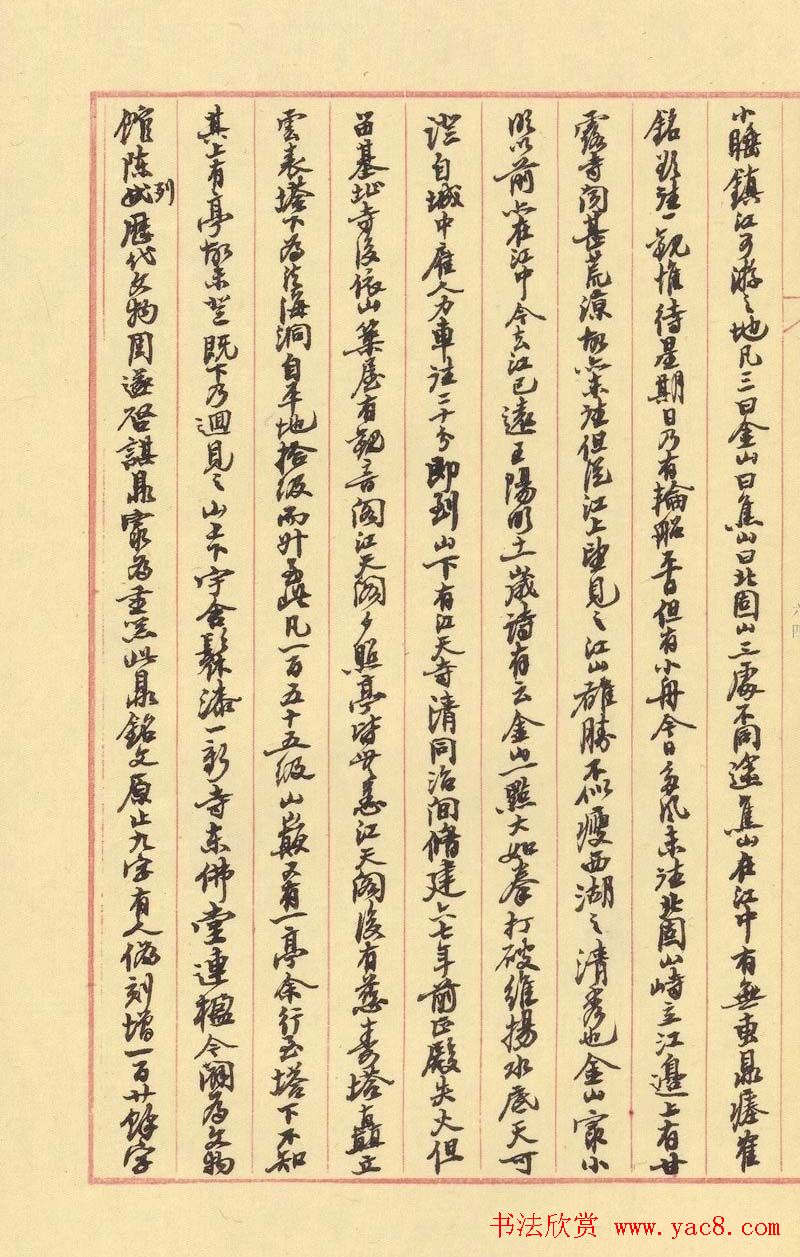 小睡鎮江可游之地凡三曰金山曰焦山曰北固山三處不同途焦山在江中有無專鼎瘞雀
銘欲往一觀惟待星期日乃有輪船平日但有小舟今日有風未往北固山峙立江邊上有甘
露寺聞甚荒涼故亦未往但從江上望見之江山雄勝不似瘦西湖之清秀也金山最小
明以前尚在江中今去江已遠王陽明十一歲詩有云金山一點大如拳打破維揚水底天可
證自城中雇人力車往二十分即到山下有江天寺清同治間脩建六七年前正殿失火但
留基址寺後依山築屋有觀音閣江天閣夕照亭皆無恙江天閣後有慈壽塔矗立
雲表塔下為法海洞自平地拾級而升至此凡一百五十五級山巔又有一亭余行至塔下不知
其上有亭故未登既下乃迴見之山上下宇舍髹漆一新寺東佛堂連楹今闢為文物
館陳列歷代文物周遂啓諆鼎最為重器此鼎銘文原止九字有人偽刻增一百廿餘字
六四
书法欣赏 www.yac8.com